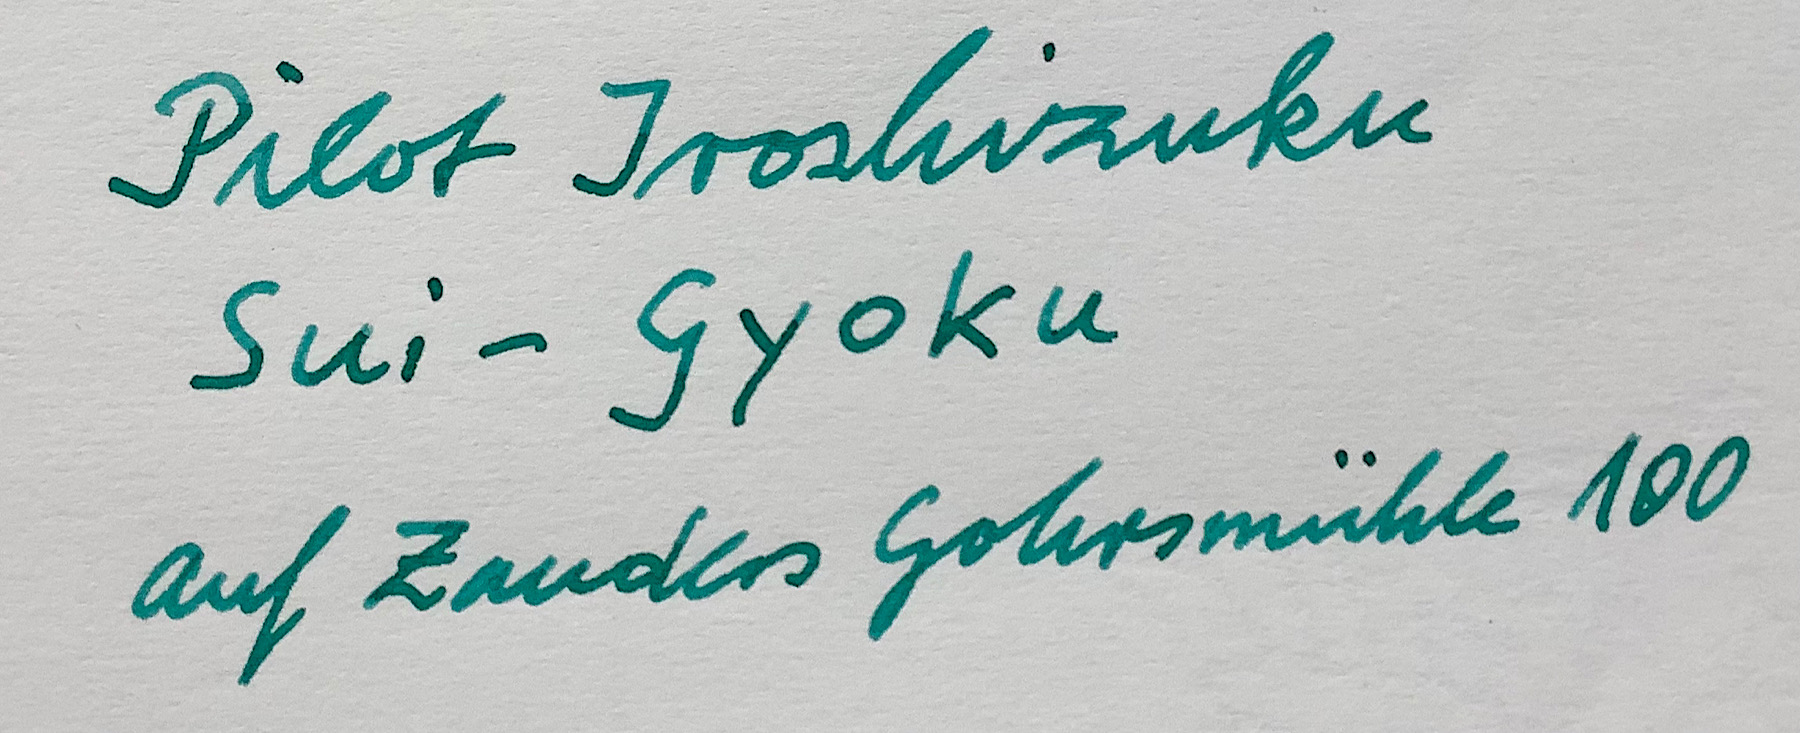 Pilot Iroshizuku
Sui-Gyoku
auf Zanders Gohrsmühle 100